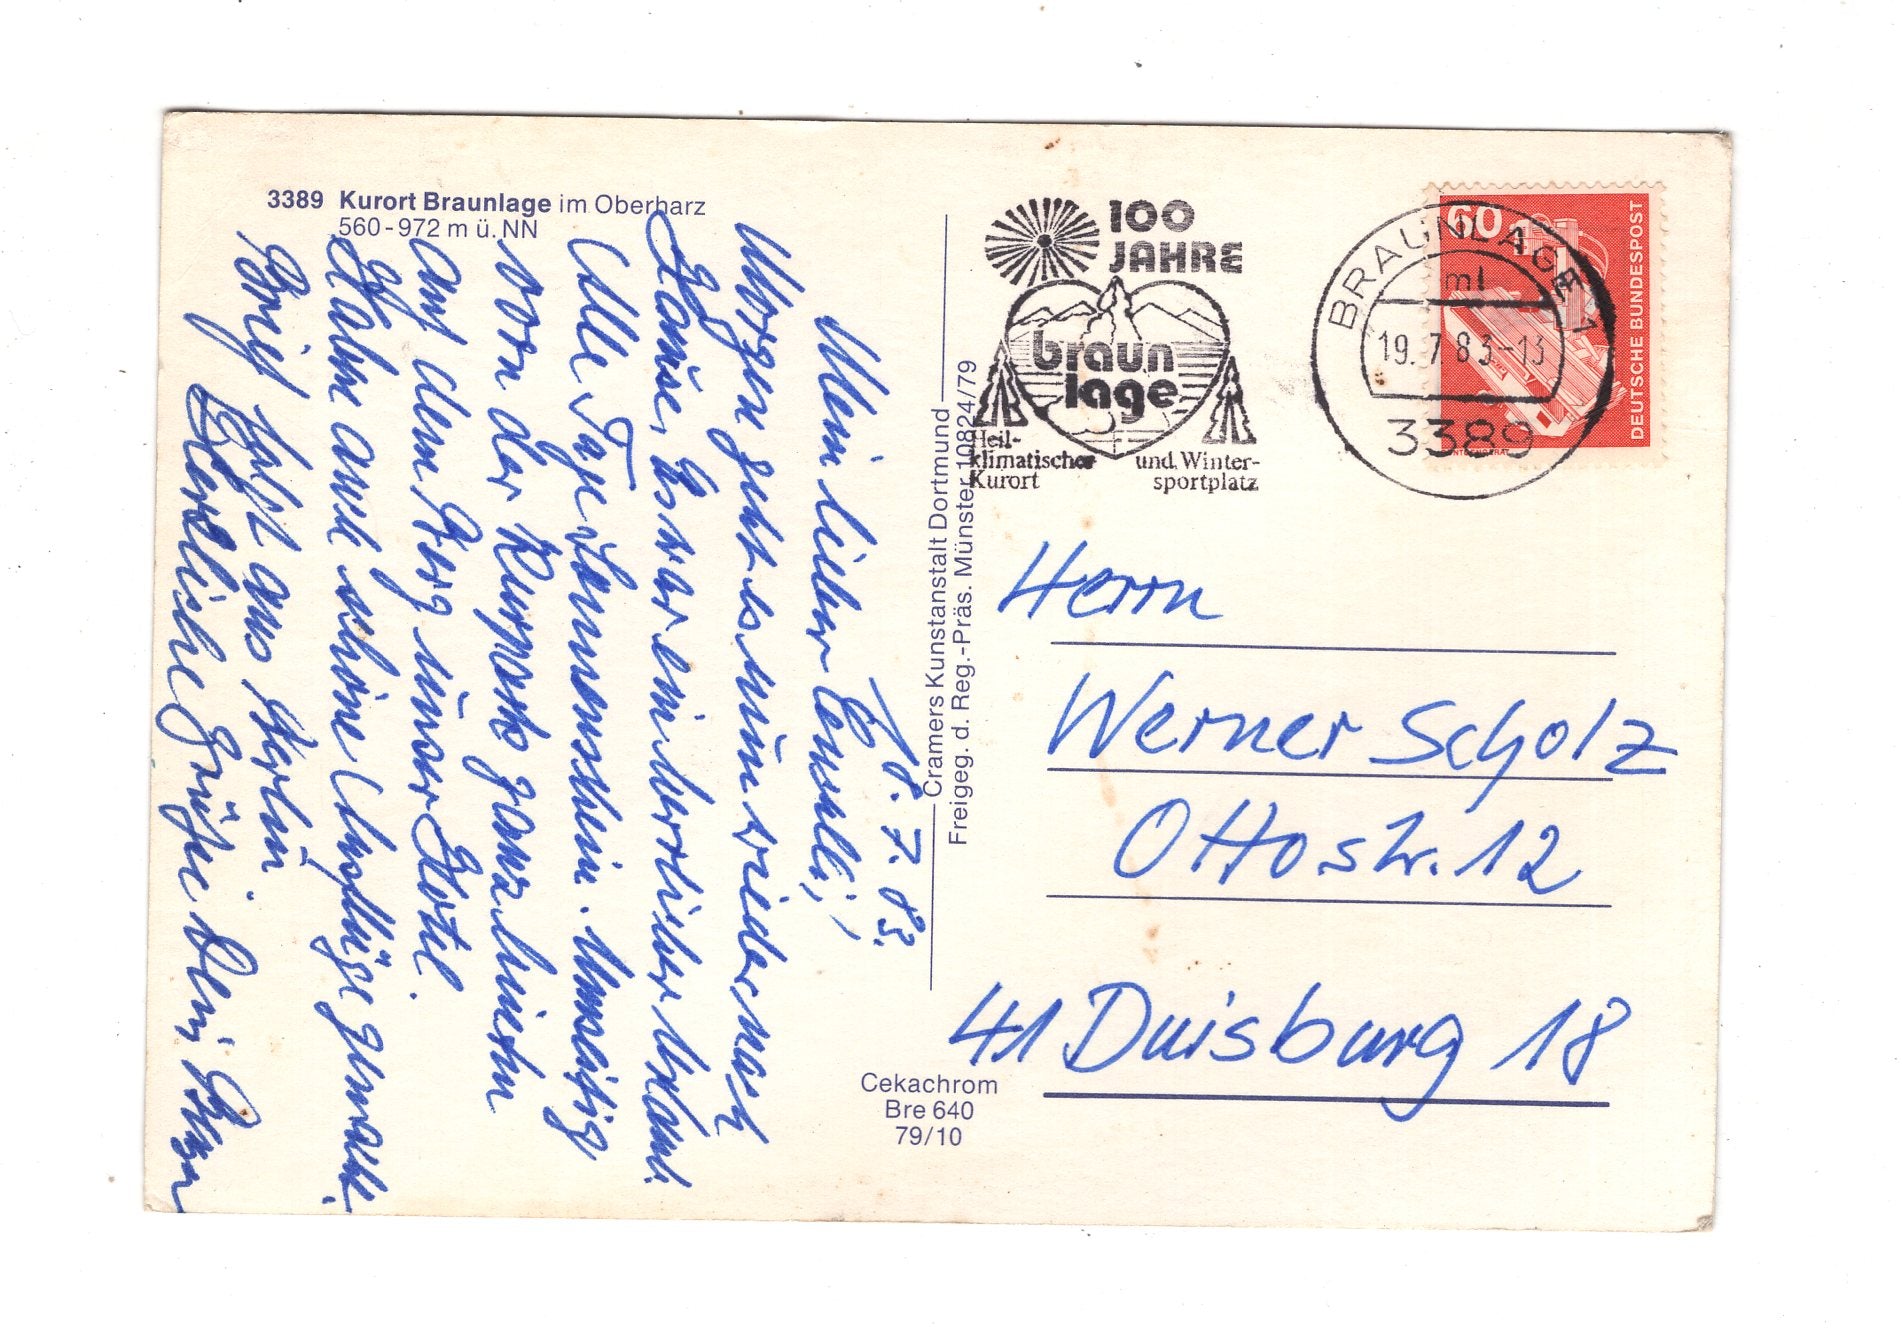 3389 Kurort Braunlage im Oberharz
560-972 m ü. NN
18. 7. 83.
Mein lieber
Morgen geht es nun wieder nach
Hause, Es war ein herrlicher Urlaub.
Alle Tage Sonnenschein. Unser
vorn der Kurpark ganz hinten
auf dem Berg unser Hotel.
Habe auch schöne Ausflüge gemacht.
Brief folgt aus Berlin
Herzliche Grüße Dein
Cramers Kunstanstalt Dortmund
Freigeg. d. Reg.-Präs. Münster 10824/79
Cekachrom
Bre 640
79/10
100
JAHRE
braun
lage
Heil-
klimatischer
Kurort
und Winter-
sportplatz
BRAUNLAGE 1
ml
19.7.83-13
3389
60
DEUTSCHE BUNDESPOST
Herrn
Werner Scholz
Ottostr. 12
41 Duisburg 18